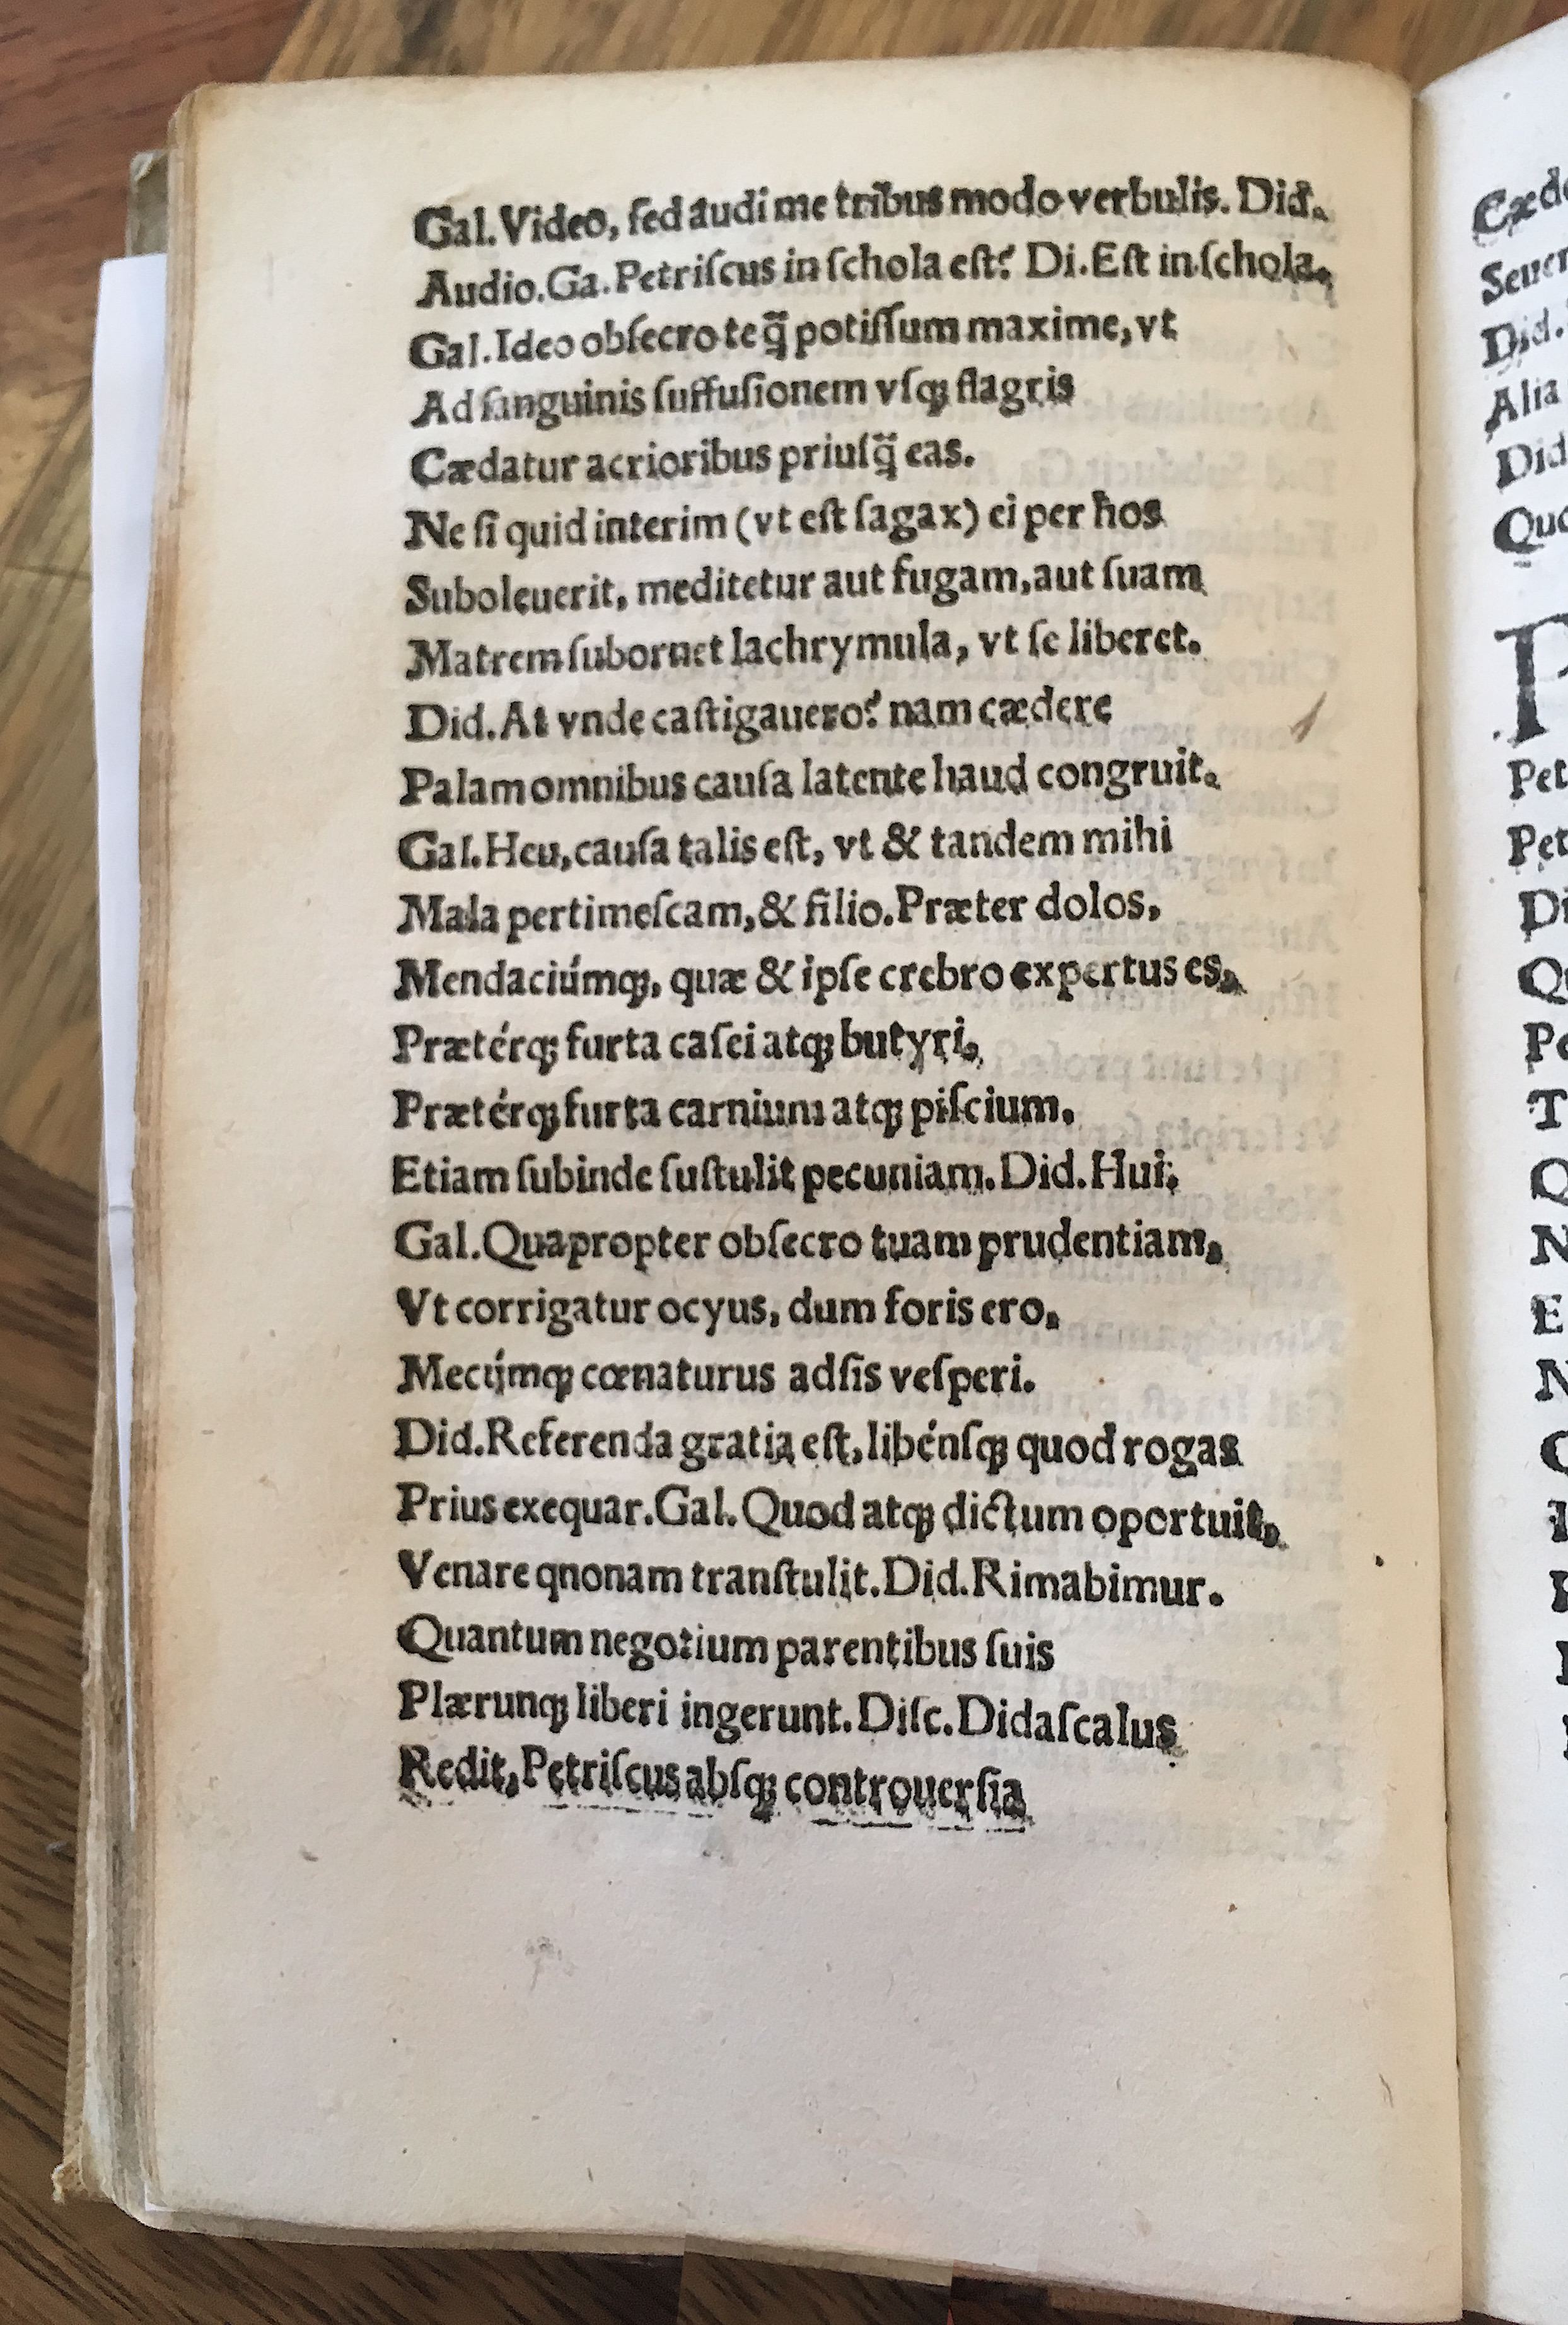 Gal. Video, ſed audi me tribus modo verbulis. Did.
Audio. Ga. Petriſcus in ſchola eſt? Di. Eſt in ſchola.
Gal. Ideo obſecro te q̃ potiſſum maxime, vt
Ad ſanguinis ſuffuſionem vſqꝫ flagris
Cædatur acrioribus priuſq̃ eas.
Ne ſi quid interim (vt eſt ſagax) ei per hos
Suboleuerit, meditetur aut fugam, aut ſuam
Matrem ſubornet lachrymula, vt ſe liberet.
Did. At vnde caſtigauero? nam cædere
Palam omnibus cauſa latente haud congruit.
Gal. Heu, cauſa talis eſt, vt & tandem mihi
Mala pertimeſcam, & filio. Præter dolos,
Mendaciúmqꝫ, quæ & ipſe crebro expertus es,
Prætérqꝫ furta caſei atqꝫ butyri,
Prætérqꝫ furta carnium atqꝫ piſcium,
Etiam ſubinde ſuſtulit pecuniam. Did. Hui,
Gal. Quapropter obſecro tuam prudentiam,
Vt corrigatur ocyus, dum foris ero,
Mecúmqꝫ cœnaturus adſis veſperi.
Did. Referenda gratia eſt, libénſqꝫ quod rogas
Prius exequar. Gal. Quod atqꝫ dictum oportuit,
Venare qnonam tranſtulit. Did. Rimabimur.
Quantum negotium parentibus ſuis
Plærunqꝫ liberi ingerunt. Diſc. Didaſcalus
Redit, Petriſcus abſqꝫ controuerſia
Did.
Alia
Did
Pet
Pet